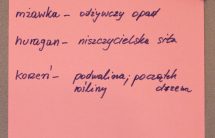 mżawka – odżywczy opad
huragan – niszczycielska siła
korzeń – podwalina, początek
rośliny drzem